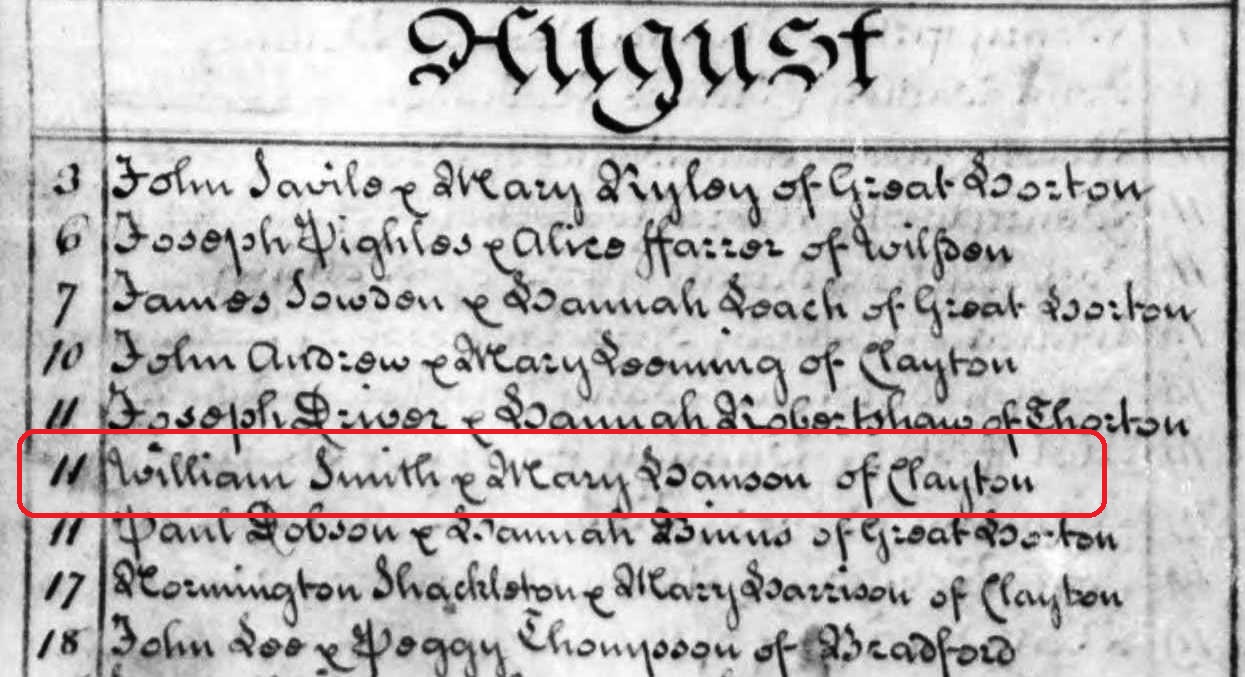 August
3 John Savile & Mary Ryley of Great Horton
6 Joseph Pighles & Alice ffarrer of Wilsden
7 James Sowden & Hannah Leach of Great Horton
10 John Andrew & Mary Leeming of Clayton
11 Joseph Driver & Hannah Robertshaw of Thorton
11 William Smith & Mary Hanson of Clayton
11 Paul Dobson & Hannah Binns of Great Horton
17 Normington Shackleton & Mary Harrison of Clayton
18 John Lee & Peggy Thompson of Bradford